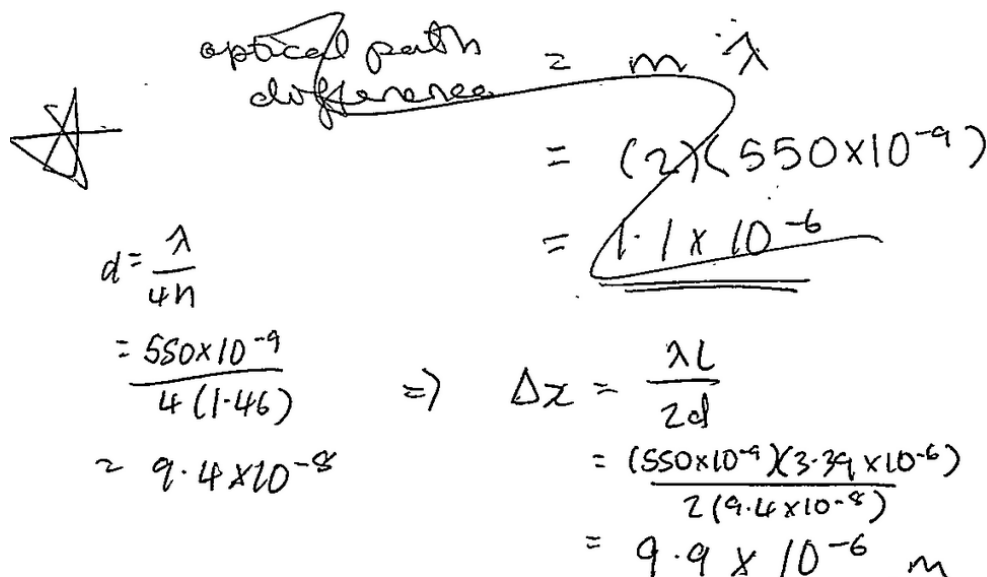 optical path
difference = m λ
= (2)(550×10⁻⁹)
= 1.1 × 10⁻⁶
d = λ/4n
= 550×10⁻⁹/4(1.46)
= 9.4×10⁻⁸
=> Δx = λL/2d
= (550×10⁻⁹)(3.39×10⁻⁶)/2(9.4×10⁻⁸)
= 9.9 × 10⁻⁶ m